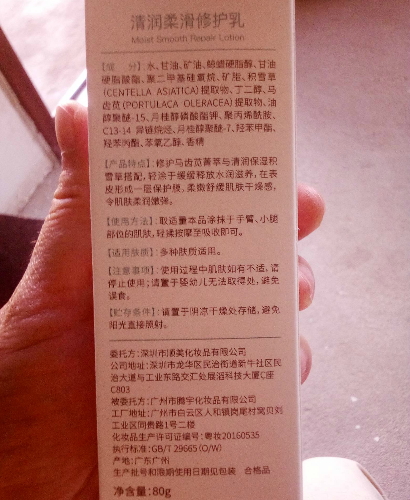 清润柔滑修护乳
Moist Smooth Repair Lotion
【成　分】:水、甘油、矿油、鲸蜡硬脂醇、甘油
硬脂酸酯、聚二甲基硅氧烷、矿脂、积雪草
(CENTELLA ASIATICA)提取物、丁二醇、马
齿苋(PORTULACA OLERACEA)提取物、油
醇聚醚-15、月桂醇磷酸酯钾、聚丙烯酰胺、
C13-14 异链烷烃、月桂醇聚醚-7、羟苯甲酯、
羟苯丙酯、苯氧乙醇、香精
【产品特点】:修护马齿苋菁萃与清润保湿积
雪草搭配,轻涂于缓缓释放水润滋养,在表
皮形成一层保护膜,柔嫩舒缓肌肤干燥感,
令肌肤柔润嫩弹。
【使用方法】:取适量本品涂抹于手臂、小腿
部位的肌肤,轻揉按摩至吸收即可。
【适用肤质】:多种肤质适用。
【注意事项】:使用过程中肌肤如有不适,请
停止使用;请置于婴幼儿无法取得处,避免
误食。
【贮存条件】:请置于阴凉干燥处存储,避免
阳光直接照射。
委托方:深圳市顺美化妆品有限公司
公司地址:深圳市龙华区民治街道新牛社区民
治大道与工业东路交汇处展滔科技大厦C座
C803
被委托方:广州市腾宇化妆品有限公司
工厂地址:广州市白云区人和镇岗尾村窝贝刘
工业区同贵路1号二楼
化妆品生产许可证编号:粤妆20160535
执行标准:GB/T 29665(O/W)
产地:广东广州
生产批号和限期使用日期见包装　合格品
净含量:80g